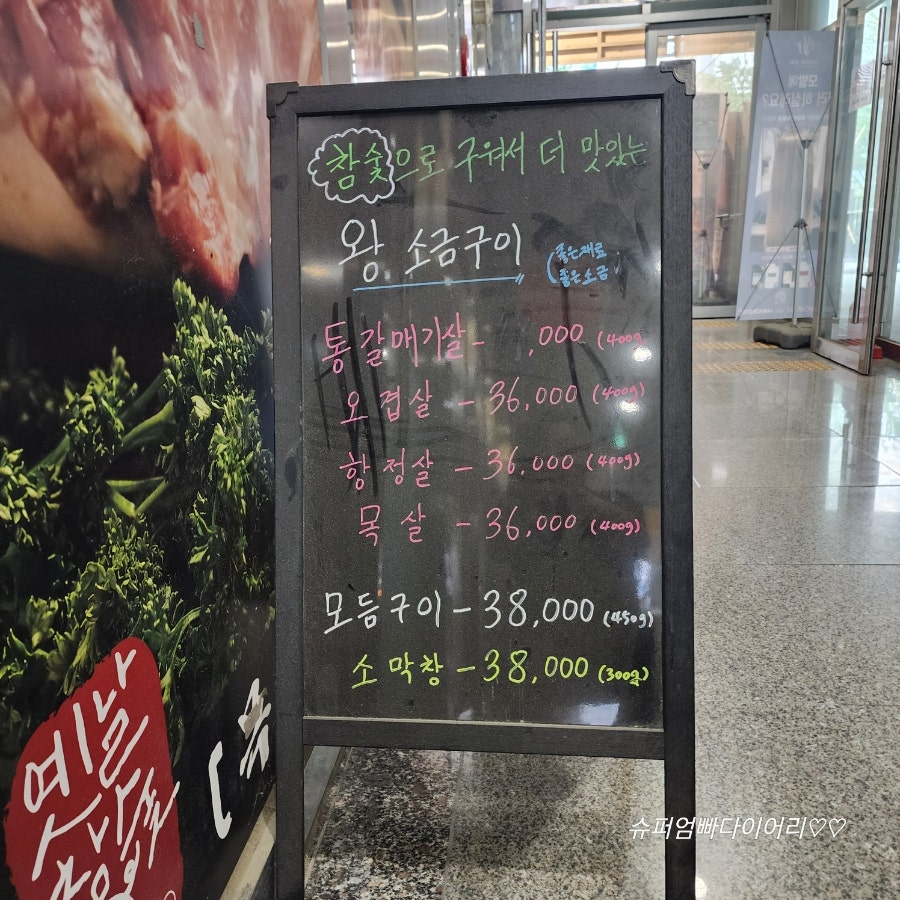 참숯으로 구워서 더 맛있는
왕 소금구이
(좋은재료
좋은소금)
통갈매기살- ,000 (400g
오겹살 - 36,000 (400g)
항정살 - 36,000 (400g)
목살 - 36,000 (400g)
모듬구이 - 38,000 (450g)
소막창 - 38,000 (300g)
옛날
[목
모발에
슈퍼엄빠다이어리♡♡